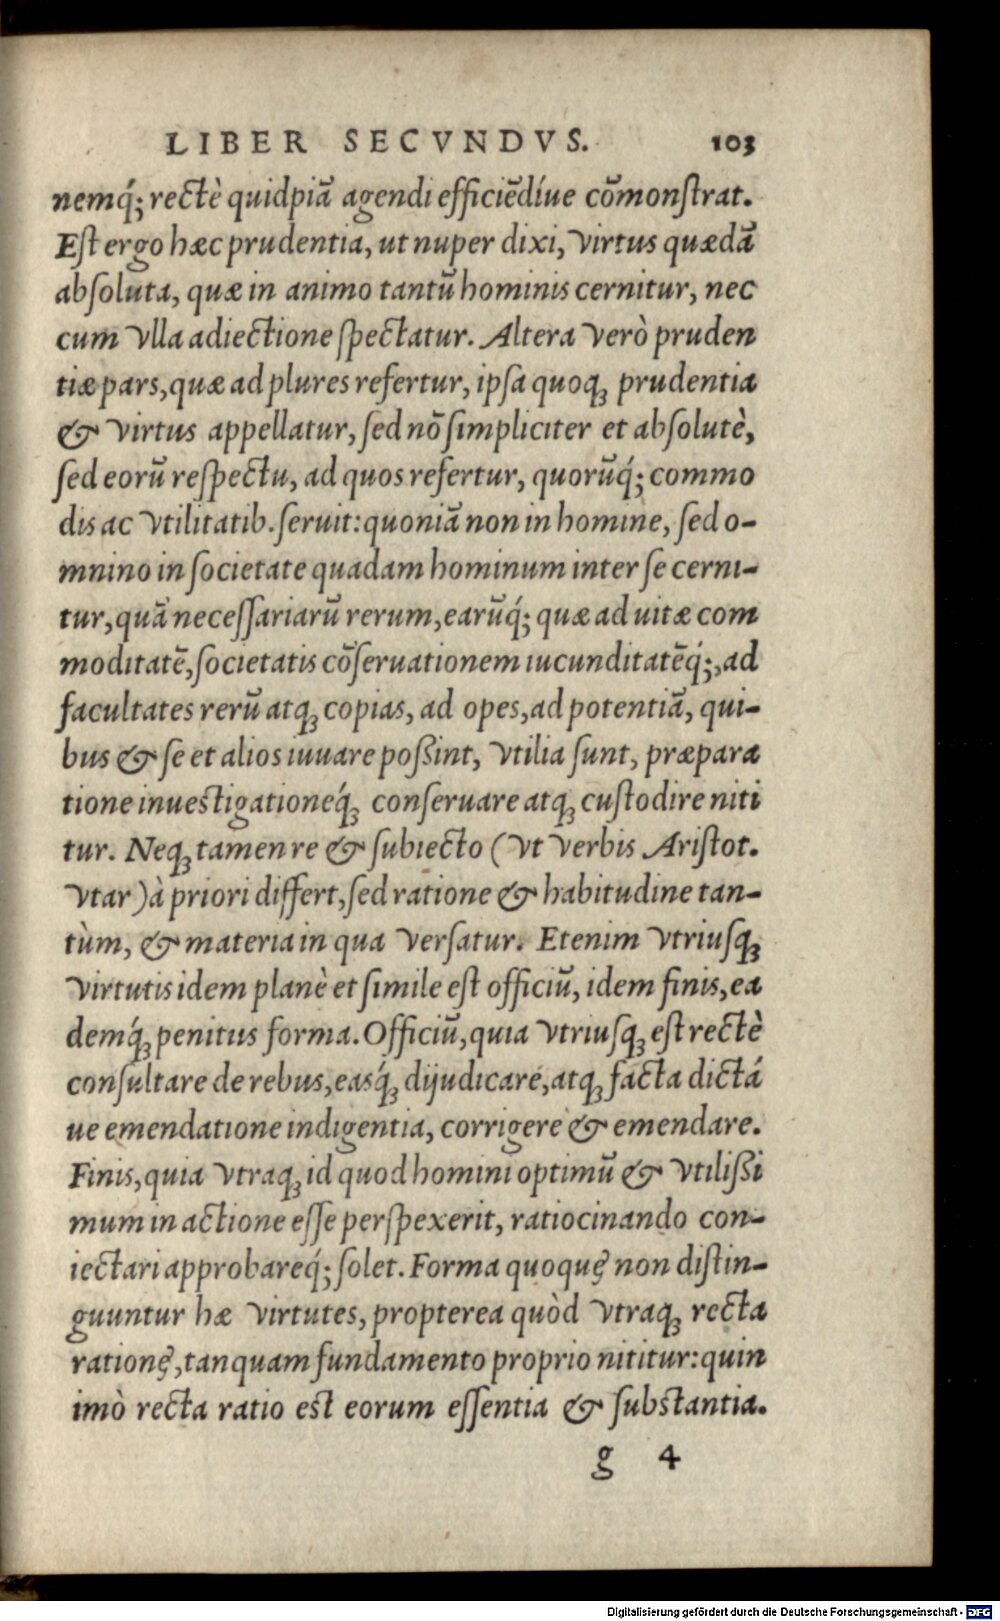 LIBER SECVNDVS. 103
nemq́; rectè quidpiā agendi efficiēdíue cōmonſtrat.
Eſt ergo hæc prudentia, ut nuper dixi, virtus quædā
abſoluta, quæ in animo tantū hominis cernitur, nec
cum vlla adiectione ſpectatur. Altera verò pruden
tiæ pars, quæ ad plures refertur, ipſa quoq; prudentia
& virtus appellatur, ſed nō ſimpliciter et abſolutè,
ſed eorū reſpectu, ad quos refertur, quorūq́; commo
dis ac vtilitatib. ſeruit: quoniā non in homine, ſed o-
mnino in ſocietate quadam hominum inter ſe cerni-
tur, quā neceſſariarū rerum, earūq́; quæ ad uitæ com
moditatē, ſocietatis cōſeruationem iucunditatēq́;, ad
facultates rerū atq; copias, ad opes, ad potentiā, qui-
bus & ſe et alios iuuare poßint, vtilia ſunt, præpara
tione inueſtigationeq́; conſeruare atq; cuſtodire niti
tur. Neq; tamen re & ſubiecto (vt verbis Ariſtot.
vtar) à priori differt, ſed ratione & habitudine tan-
tùm, & materia in qua verſatur. Etenim vtriuſq;
virtutis idem planè et ſimile eſt officiū, idem finis, ea
demq́; penitus forma. Officiū, quia vtriuſq; eſt rectè
conſultare de rebus, eaſq́; dijudicare, atq; facta dictá
ue emendatione indigentia, corrigere & emendare.
Finis, quia vtraq; id quod homini optimū & vtilißi
mum in actione eſſe perſpexerit, ratiocinando con-
iectari approbareq́; ſolet. Forma quoquę non diſtin-
guuntur hæ virtutes, propterea quòd vtraq; recta
rationę, tanquam fundamento proprio nititur: quin
imò recta ratio eſt eorum eſſentia & ſubſtantia.
g 4
Digitalisierung gefördert durch die Deutsche Forschungsgemeinschaft - DFG